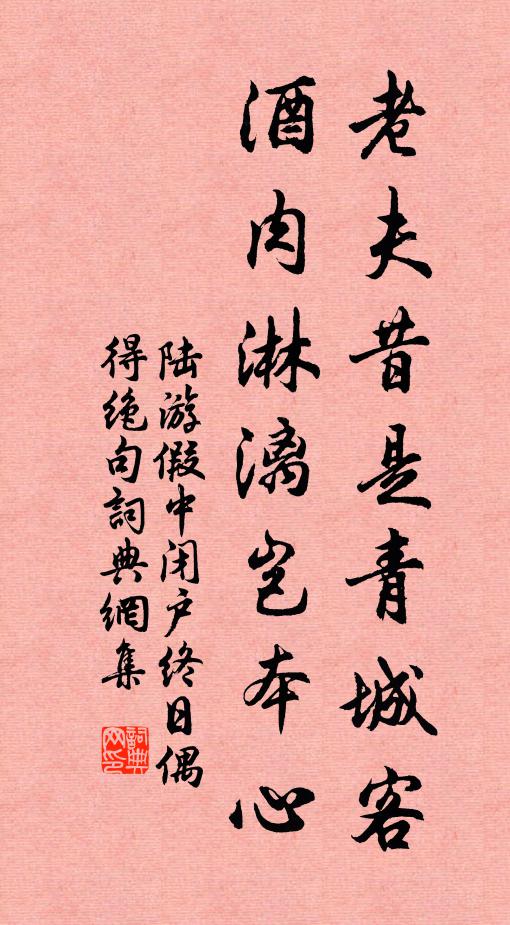 老夫昔是青城客
酒肉淋漓岂本心
陆游假中闭户终日偶
得绝句詞典網集
詞典
网印